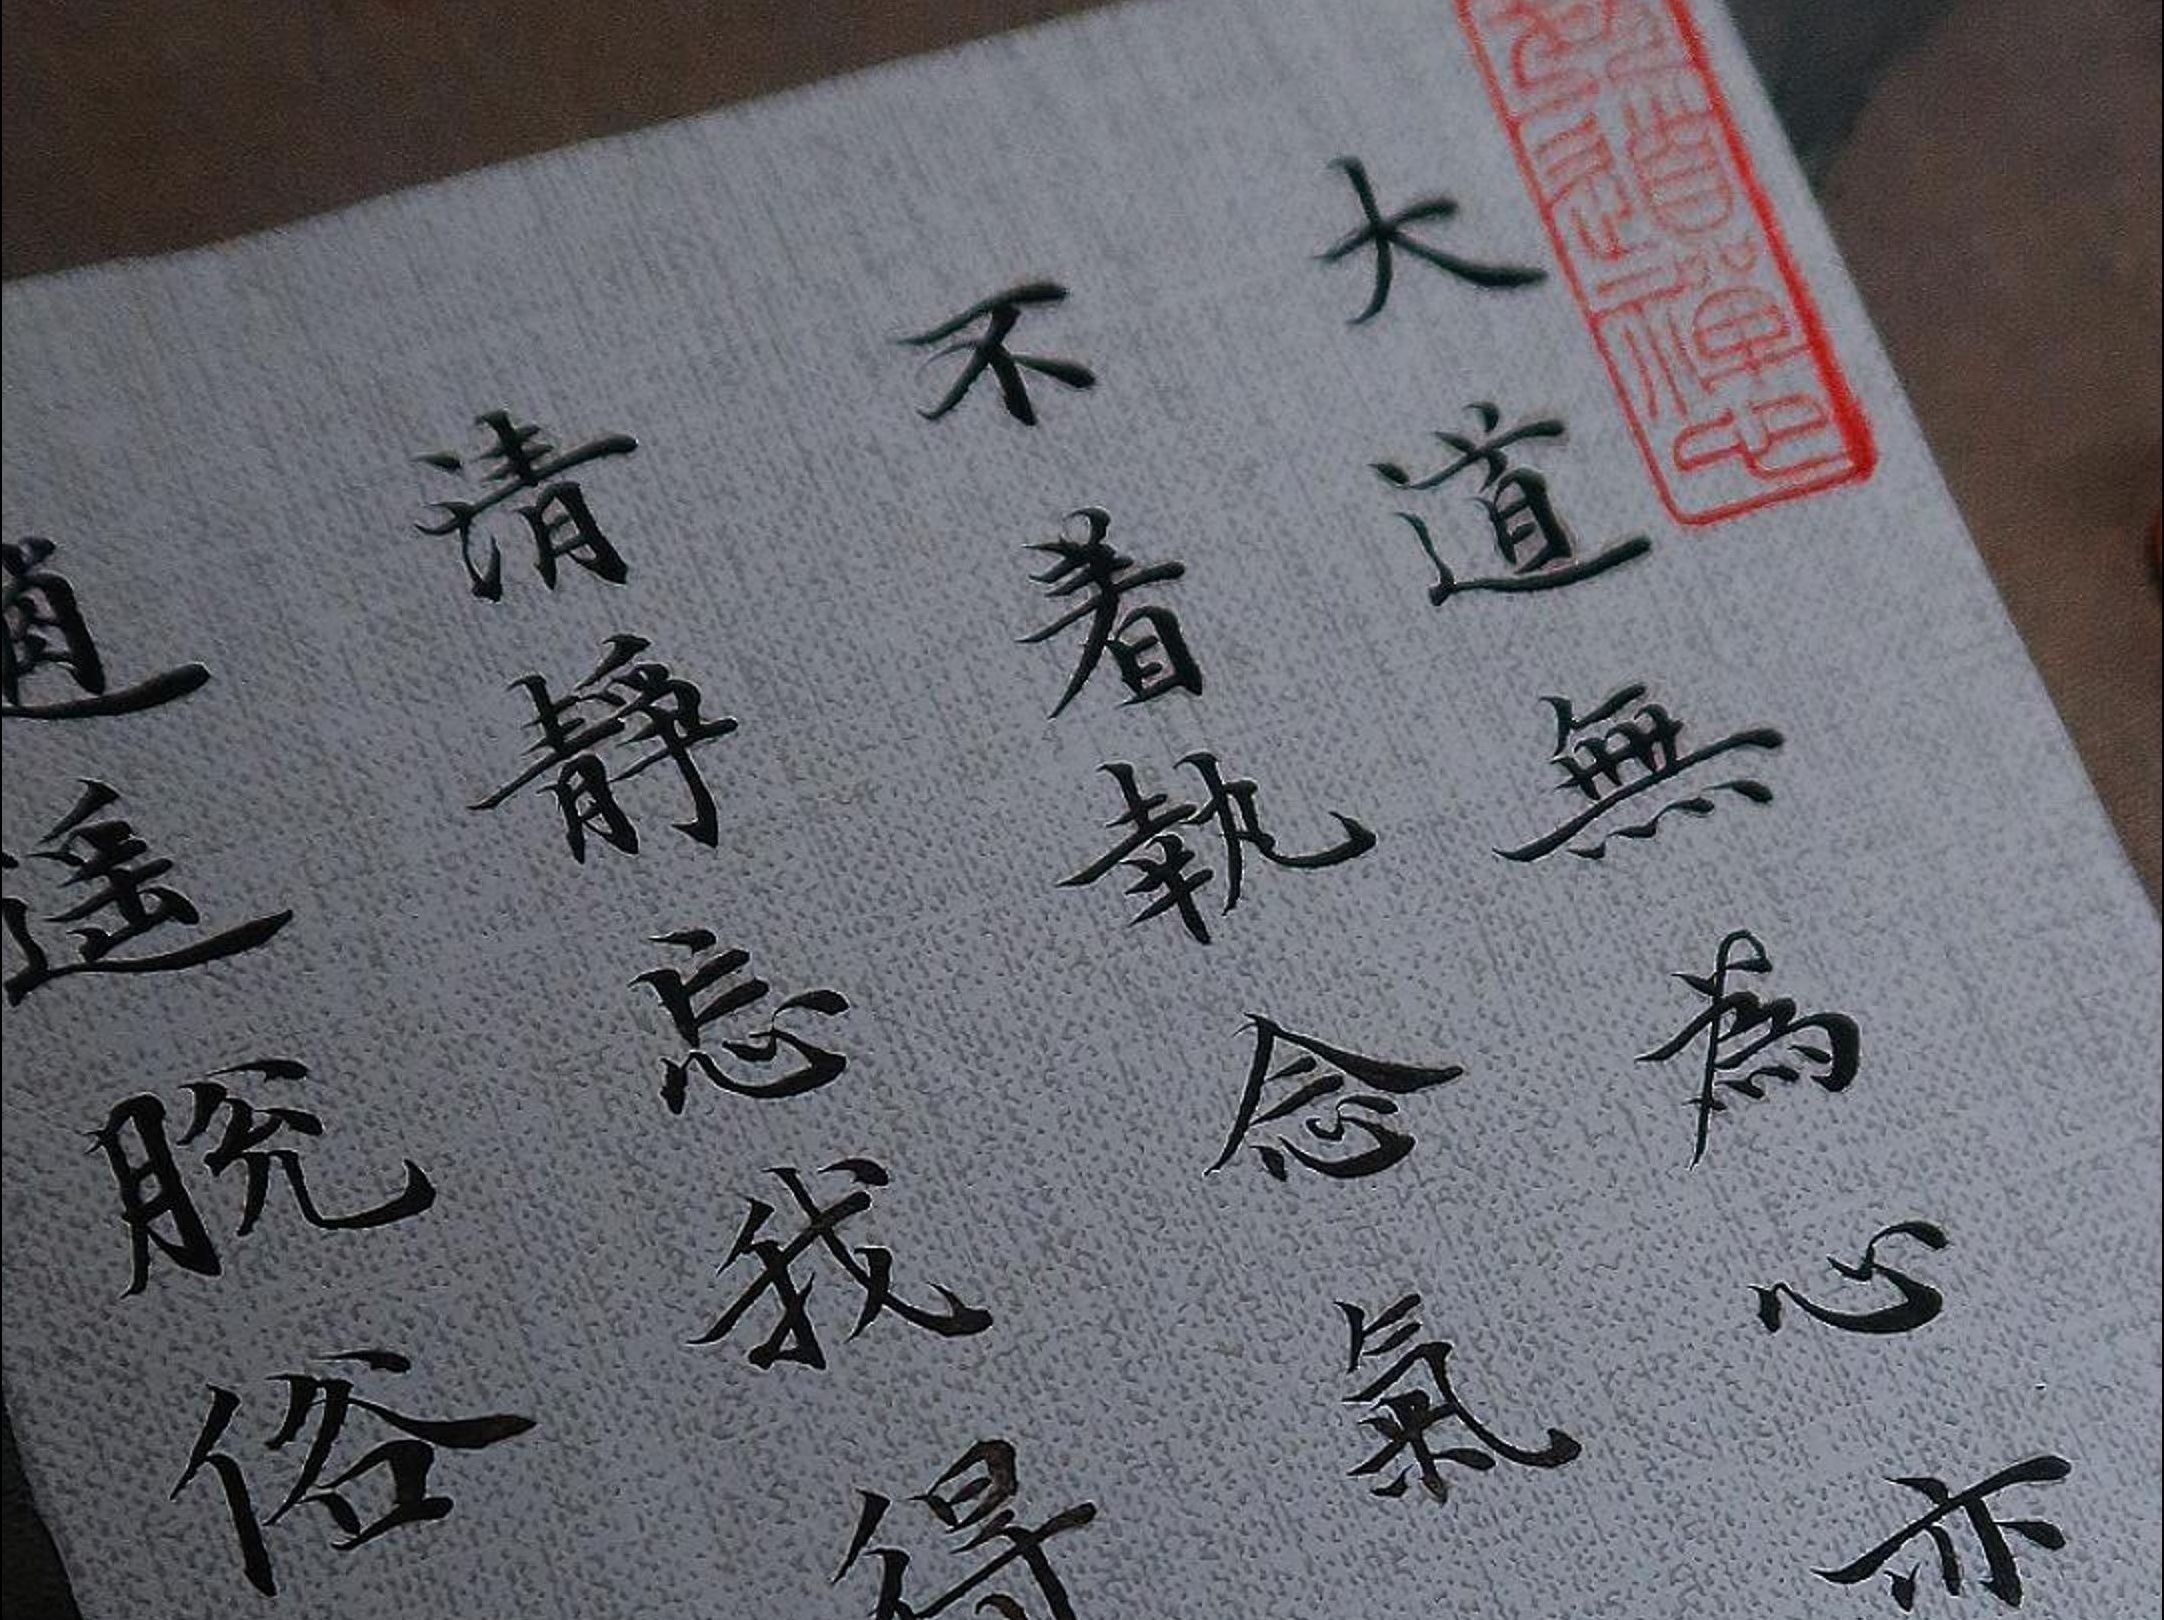 大道無為心亦
不着執念氣
清靜忘我得
逍遥脫俗